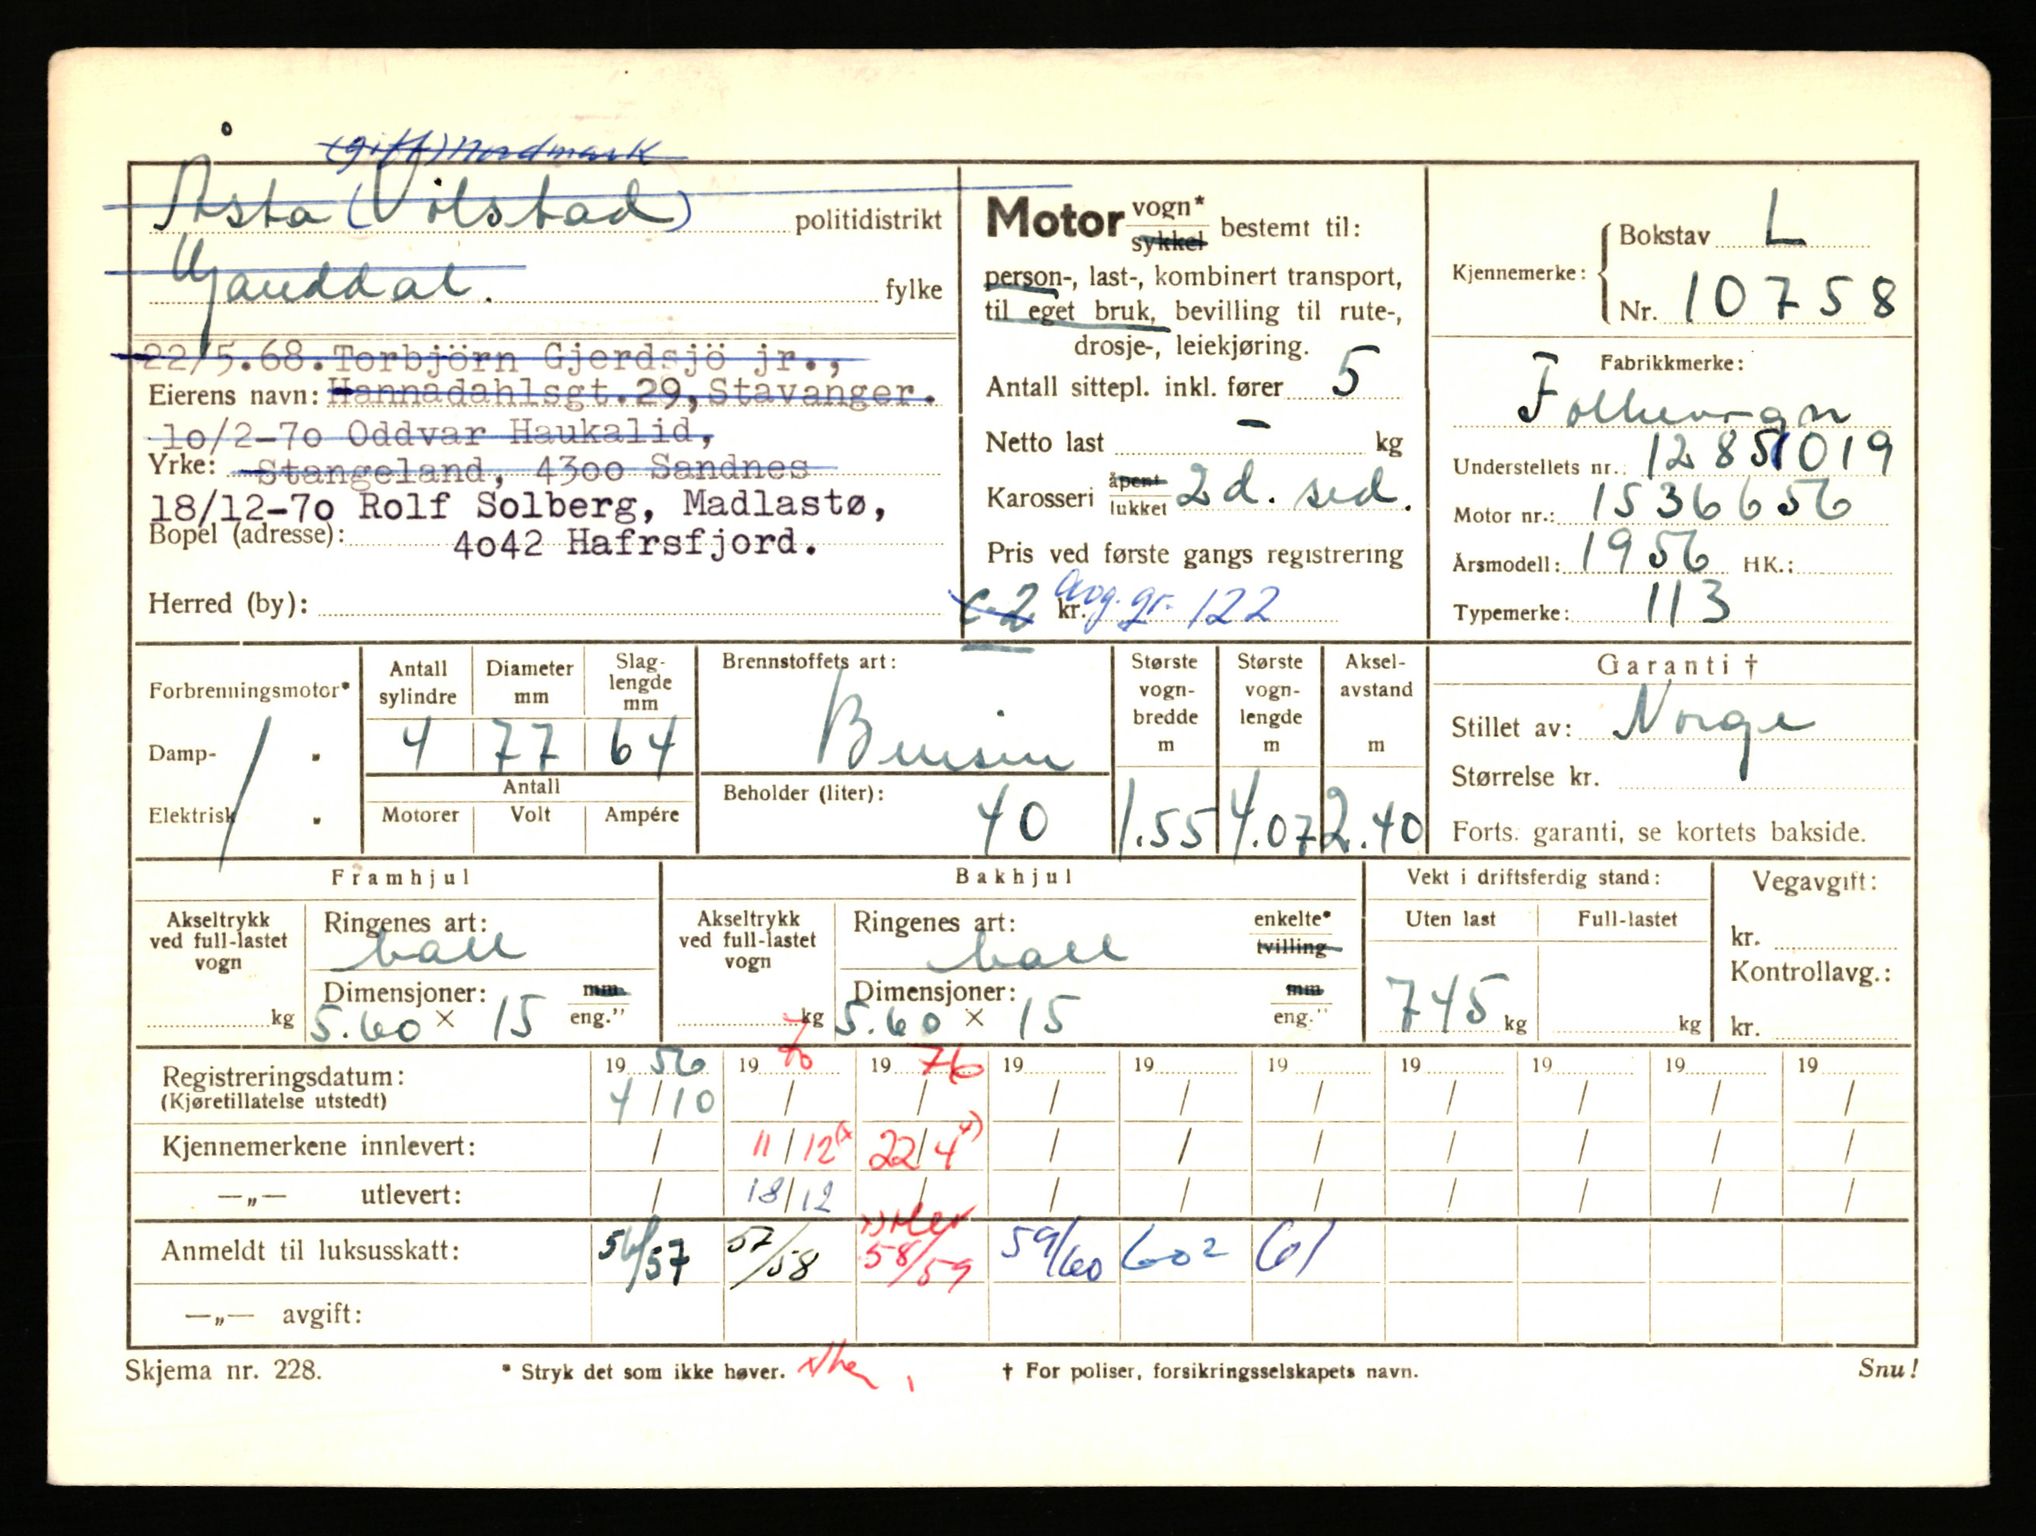 (gift) Nordmark
Åsta (Vilstad) politidistrikt
Ganddal. fylke
22/5.68. Torbjörn Gjerdsjö jr.,
Eierens navn: Hannadahlsgt. 29, Stavanger.
10/2-70 Oddvar Haukalid,
Yrke: Stangeland, 4300 Sandnes
18/12-70 Rolf Solberg, Madlastø,
Bopel (adresse): 4042 Hafrsfjord.
Herred (by):
Motor vogn* sykkel bestemt til:
person-, last-, kombinert transport,
til eget bruk, bevilling til rute-,
drosje-, leiekjøring.
Antall sittepl. inkl. fører 5
Netto last - kg
Karosseri åpent lukket 2 d. sed.
Pris ved første gangs registrering
c-2 kr. Avg. gr. 122
Kjennemerke: Bokstav L
Nr. 10758
Fabrikkmerke:
Folkevogn
Understellets nr.: 12851019
Motor nr.: 1536656
Årsmodell: 1956 HK.:
Typemerke: 113
Forbrenningsmotor*
Damp- "
Elektrisk "
Antall sylindre 4
Diameter mm 77
Slag-lengde mm 64
Antall
Motorer Volt Ampére
Brennstoffets art:
Bensin
Beholder (liter):
40
Største vogn-bredde m 1.55
Største vogn-lengde m 4.07
Aksel-avstand m 2.40
Garanti †
Stillet av: Norge
Størrelse kr.
Forts. garanti, se kortets bakside.
Framhjul
Akseltrykk ved full-lastet vogn kg
Ringenes art: ball
Dimensjoner: mm
5.60 × 15 eng."
Bakhjul
Akseltrykk ved full-lastet vogn kg
Ringenes art: ball enkelte* tvilling
Dimensjoner: mm
5.60 × 15 eng."
Vekt i driftsferdig stand:
Uten last Full-lastet
745 kg kg
Vegavgift:
kr.
Kontrollavg.:
kr.
Registreringsdatum: 19 56 19 70 19 76 19 19 19 19 19 19 19
(Kjøretillatelse utstedt) 4/10 / / / / / / / / /
Kjennemerkene innlevert: / 11/12 22/4 / / / / / / /
—„— utlevert: / 18/12 / / / / / / / /
Anmeldt til luksusskatt: 56/57 57/58 58/59 59/60 60² 61
—„— avgift:
Skjema nr. 228. * Stryk det som ikke høver. † For poliser, forsikringsselskapets navn. Snu!